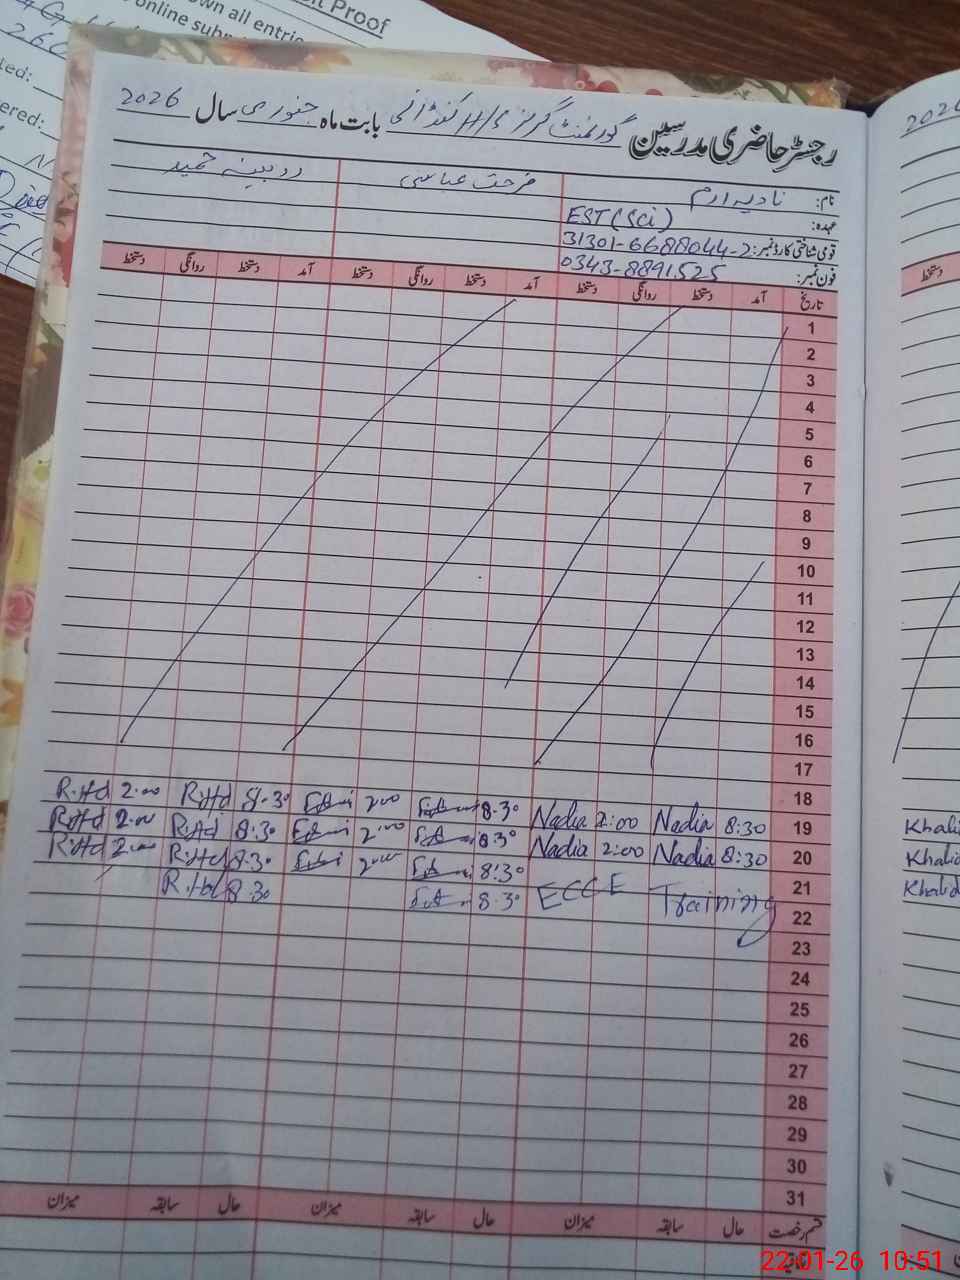 t Proof
own all entrie
online subm
260
ted:
ered:
رجسٹر حاضری مدرسین گورنمنٹ گرلز H/S بابت ماہ جنوری سال 2026
نام: نادیہ ارم فرحت عباسی روبینہ حمید
عہدہ: EST (Sci)
قومی شناختی کارڈ نمبر: 31301-6688044-2
فون نمبر: 0343-8891525
تاریخ آمد دستخط روانگی دستخط آمد دستخط روانگی دستخط آمد دستخط روانگی دستخط
1
2
3
4
5
6
7
8
9
10
11
12
13
14
15
16
17
18
R.Hd 2:00 R.Hd 8:30 2:00 8:30 Nadia 2:00 Nadia 8:30 19
R.Hd 2:00 R.Hd 8:30 2:00 8:30 Nadia 2:00 Nadia 8:30 20
R.Hd 2:00 R.Hd 8:30 2:00 8:30 21
R.Hd 8:30 8:30 ECCE Training 22
23
24
25
26
27
28
29
30
31
قسم رخصت حال سابقہ میزان حال سابقہ میزان حال سابقہ میزان
2026
دستخط
Khalid
Khalid
Khalid
22-01-26 10:51